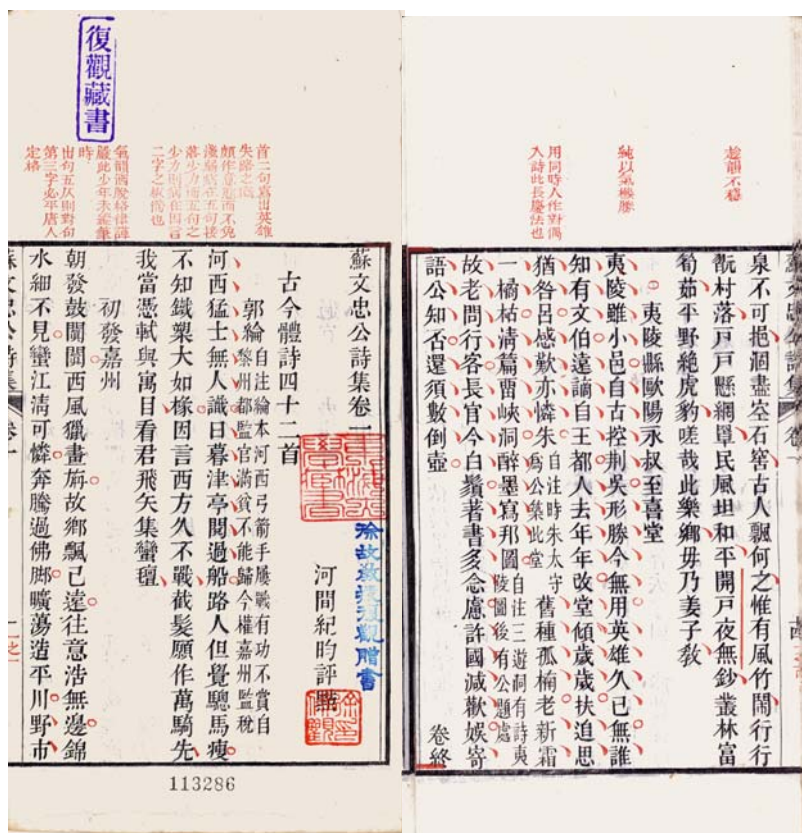 復觀藏書
首二句寫出英雄
失路之感
頗作意態而不免
淺弱病在五句接
落少力而五句之
少力則病在因言
二字之板滯也
氣韻洒脫格律謹
嚴此少年未縱筆
時
出句五仄則對句
第三字必平唐人
定格
蘇文忠公詩集卷一
河間紀昀評點
徐故教授復觀贈書
古今體詩四十二首
郭綸 自注綸本河西弓箭手屢戰有功不賞自
黎州都監官滿貧不能歸今權嘉州監稅
河西猛士無人識日暮津亭閱過船路人但覺驄馬瘦
不知鐵槊大如椽因言西方久不戰截髮願作萬騎先
我當憑軾與寓目看君飛矢集蠻氊
初發嘉州
朝發鼓闐闐西風獵畫旃故鄉飄已遠往意浩無邊錦
水細不見蠻江清可憐奔騰過佛腳曠蕩造平川野市
蘇文忠公詩集 卷一
113286
趁韻不穩
純以氣機勝
用同時人作對偶
入詩此長慶法也
泉不可挹涸盡空石窖古人飄何之惟有風竹鬧行行
翫村落戸戸懸網罩民風坦和平開戸夜無鈔叢林富
筍茹平野絶虎豹嗟哉此樂鄉毋乃姜子敎
夷陵縣歐陽永叔至喜堂
夷陵雖小邑自古控荆吳形勝今無用英雄久已無誰
知有文伯遠謫自王都人去年年改堂傾歲歲扶追思
猶咎呂感歎亦憐朱 自注時朱太守
爲公築此堂 舊種孤楠老新霜
一橘枯清篇畱峽洞醉墨寫邦圖 自注三遊洞有詩夷
陵圖後有公題處
故老問行客長官今白鬚著書多念慮許國減歡娛寄
語公知否還須數倒壺
卷終